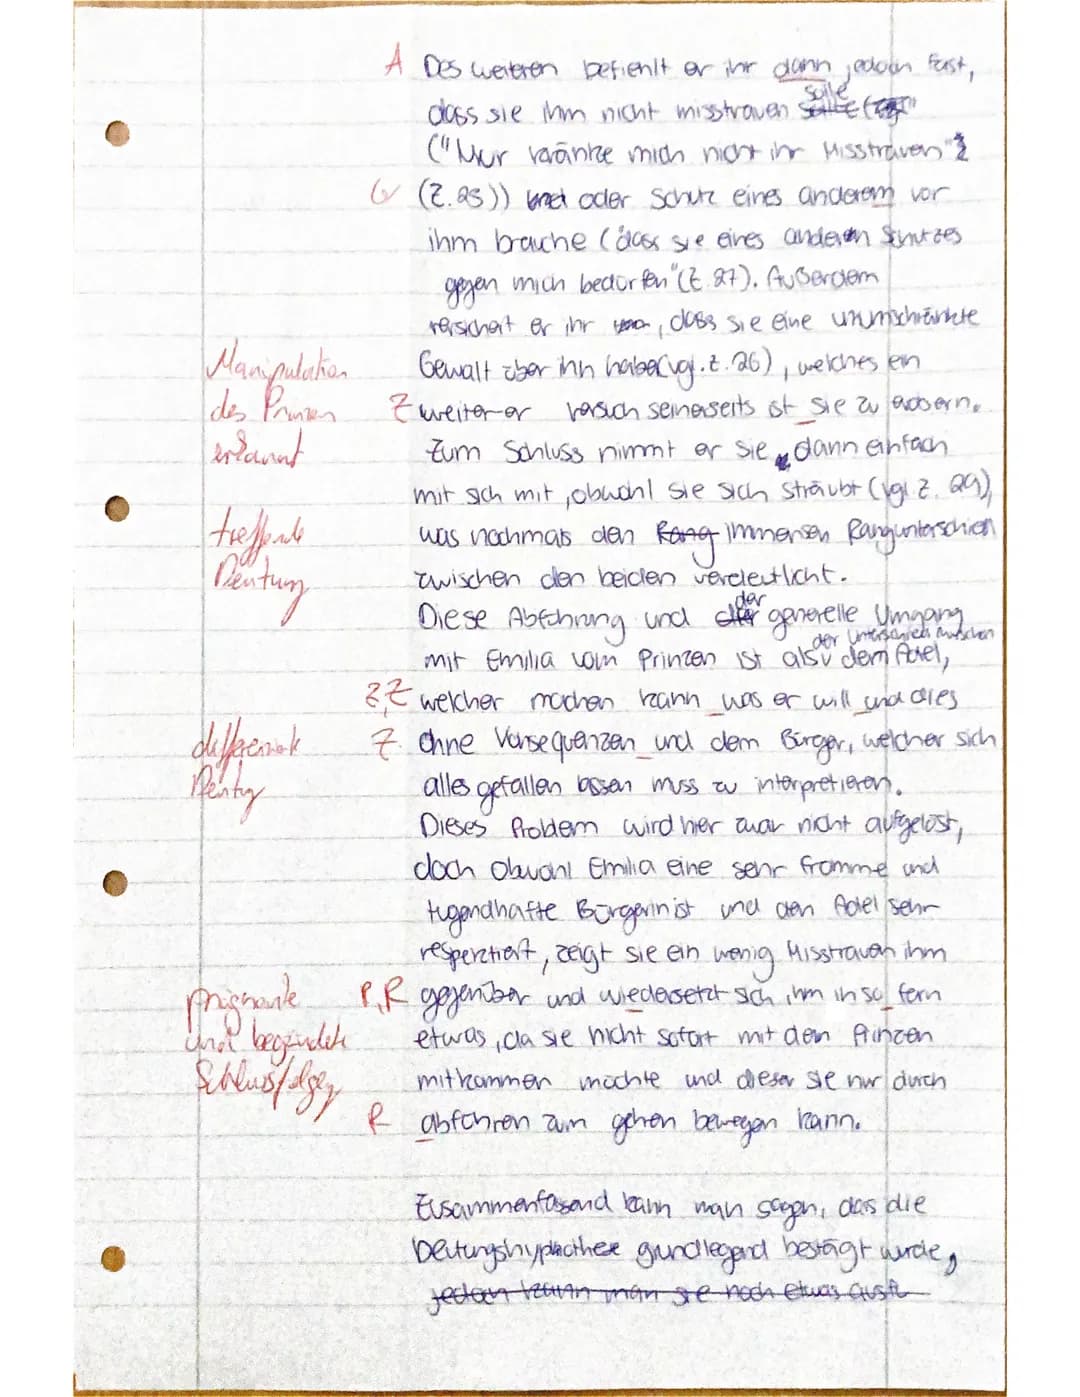 A Des weiteren befiehlt er ihr dann jedoch fast,
solle
dass sie ihm nicht misstrauen
("Nur kränke mich nicht ihr Misstrauen"
G (Z.25)) und oder Schutz eines anderem vor
ihm brauche ("dass sie eines anderen Schutzes
gegen mich bedürfen" (Z. 27). Außerdem
versichert er ihr, dass sie eine unumschränkte
Manipulation Gewalt über ihn habe (vgl. Z. 26), welches ein
des Prinzen Z weiterer Versuch seinerseits ist sie zu erobern.
erkannt Zum Schluss nimmt er sie dann einfach
mit sich mit, obwohl sie sich sträubt (vgl Z. 29),
treffende was nochmals den Rang immensen Rangunterschied
Deutung zwischen den beiden verdeutlicht.
der
Diese Abführung und generelle Umgang
der Unterschied zwischen
mit Emilia vom Prinzen ist als dem Adel,
Z,Z welcher machen kann was er will und dies
differenzierte Z ohne Konsequenzen und dem Bürger, welcher sich
Deutung alles gefallen lassen muss zu interpretieren.
Dieses Problem wird hier zwar nicht aufgelöst,
doch obwohl Emilia eine sehr fromme und
tugendhafte Bürgerin ist und den Adel sehr
respektiert, zeigt sie ein wenig Misstrauen ihm
prägnante P,R gegenüber und wiedersetzt sich ihm in so fern
und begründete etwas, da sie nicht sofort mit dem Prinzen
Schlussfolger mitkommen möchte und dieser sie nur durch
R abführen zum gehen bewegen kann.
Zusammenfassend kann man sagen, das die
Deutungshypothese grundlegend bestätigt wurde,
jedoch kann man sie noch etwas